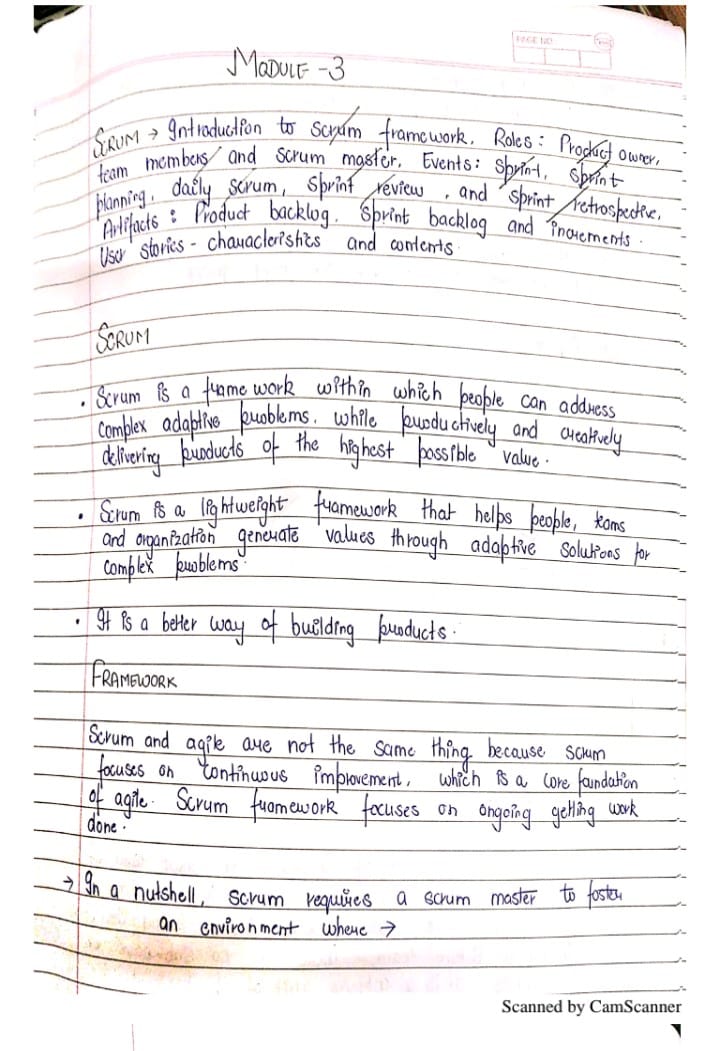 PAGE NO
MODULE - 3
SCRUM → Introduction to scrum framework. Roles: Product owner,
team members and scrum master. Events: Sprint, sprint
planning, daily scrum, sprint review, and sprint retrospective.
Artifacts: Product backlog, sprint backlog and increments.
User stories - characteristics and contents
SCRUM
• Scrum is a frame work within which people can address
complex adaptive problems, while productively and creatively
delivering products of the highest possible value.
• Scrum is a lightweight framework that helps people, teams
and organization generate values through adaptive solutions for
complex problems.
• It is a better way of building products.
FRAMEWORK
Scrum and agile are not the same thing because scrum
focuses on continuous improvement, which is a core foundation
of agile. Scrum framework focuses on ongoing getting work
done.
→ In a nutshell, scrum requires a scrum master to foster
an environment where →
Scanned by CamScanner